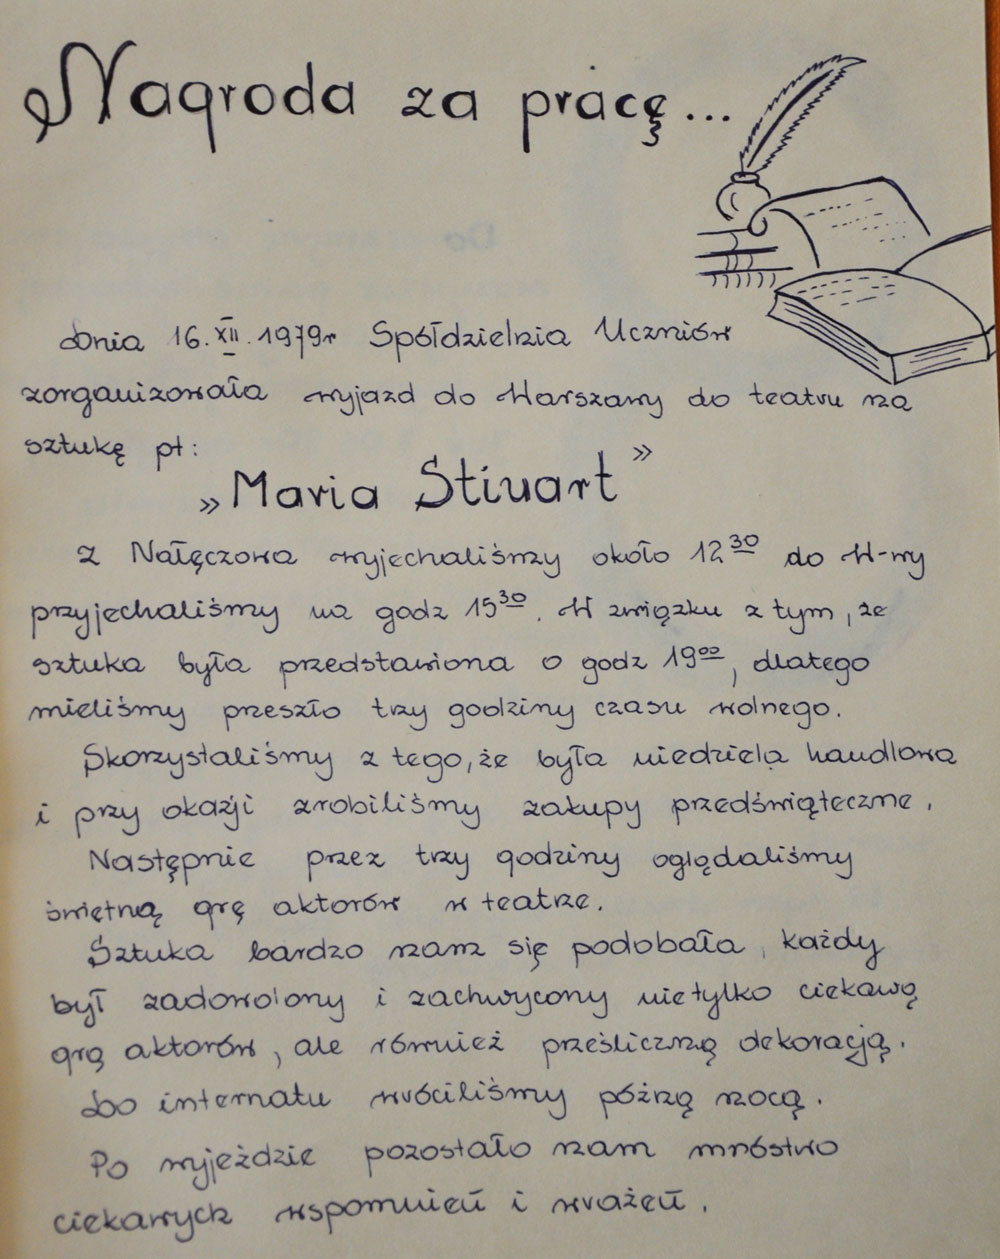 Nagroda za pracę...
dnia 16.XII.1979r Spółdzielnia Uczniów
zorganizowała wyjazd do Warszawy do teatru na
sztukę pt:
„Maria Stiuart”
Z Nałęczowa wyjechaliśmy około 12³⁰ do W-wy
przyjechaliśmy na godz 15³⁰. W związku z tym, że
sztuka była przedstawiona o godz 19⁰⁰, dlatego
mieliśmy przeszło trzy godziny czasu wolnego.
Skorzystaliśmy z tego, że była niedziela handlowa
i przy okazji zrobiliśmy zakupy przedświąteczne.
Następnie przez trzy godziny oglądaliśmy
świetną grę aktorów w teatrze.
Sztuka bardzo nam się podobała, każdy
był zadowolony i zachwycony nie tylko ciekawą
grą aktorów, ale również prześliczną dekoracją.
Do internatu wróciliśmy późną nocą.
Po wyjeździe pozostało nam mnóstwo
ciekawych wspomnień i wrażeń.